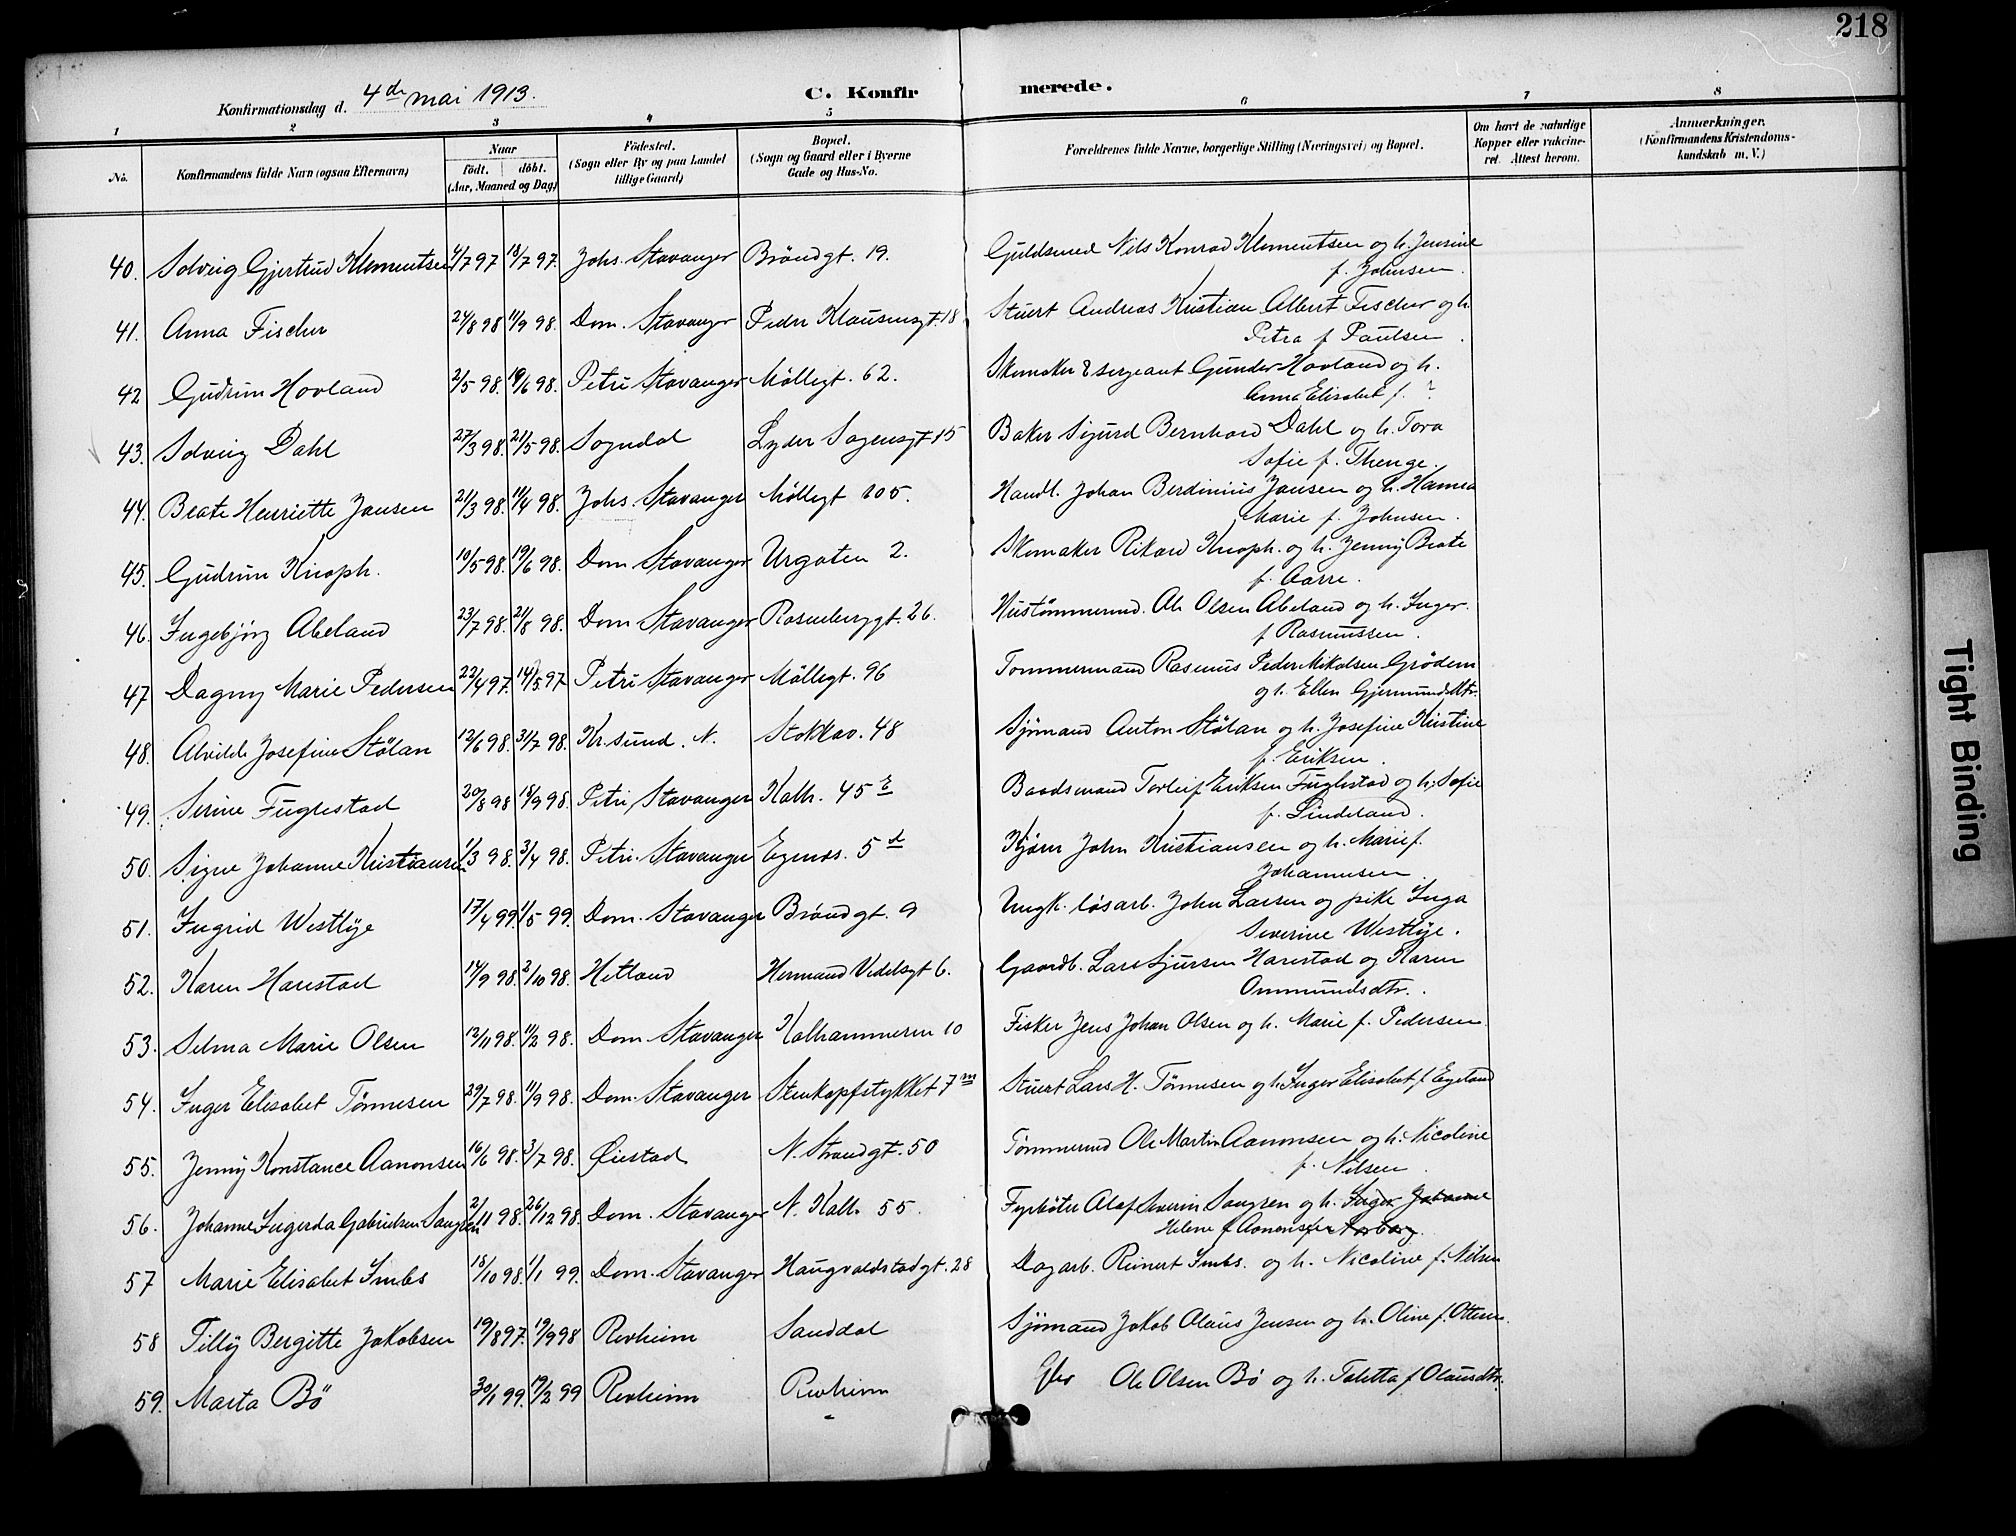 218
Konfirmationsdag d. 4de mai 1913.
C. Konfir merede.
1 2 3 4 5 6 7 8
No. Konfirmandens fulde Navn (ogsaa Efternavn) Naar født. døbt. (Aar, Maaned og Dag) Fødested. (Sogn eller By og paa Landet tillige Gaard) Bopæl. (Sogn og Gaard eller i Byerne Gade og Hus-No. Forældrenes fulde Navne, borgerlige Stilling (Næringsvei) og Bopæl. Om havt de naturlige Kopper eller vaksineret. Attest herom. Anmærkninger. (Konfirmandens Kristendomskundskab m. V.)
40. Solveig Gjertrud Klementsen 4/7 97 18/7 97. Johs. Stavanger Brøndgt. 19. Guldsmed Nils Konrad Klementsen og h. Jensine
f. Johnsen.
41. Anna Fischer 24/8 98 11/9 98. Dom. Stavanger Peder Klausensgt. 18 Stuert Andreas Kristian Albert Fischer og h.
Petra f. Paulsen.
42 Gudrun Hovland 2/5 98. 19/6 98. Petri Stavanger Møllegt. 62. Skomaker & sergeant Gunder Hovland og h.
Anna Elisabet f. ?
43. Solveig Dahl 27/3 98. 21/5 98. Sogndal Lyder Sagensgt 15 Baker Sigurd Bernhard Dahl og h. Tora
Sofie f. Thenge.
44. Beate Henriette Jansen 21/3 98. 11/4 98. Johs. Stavanger Møllegt 105. Handl. Johan Berdinius Jansen og h. Hanna
Marie f. Johnsen.
45. Gudrun Knoph. 10/5 98. 19/6 98. Dom Stavanger Urgaten 2. Skomaker Rikard Knoph. og h. Jenny Beate
f. Aarre.
46. Ingebjørg Abeland 23/7 98. 21/8 98. Dom Stavanger Rosenberggt. 26. Hustømmermd. Ole Olsen Abeland og h. Inger
f Rasmussen.
47 Dagny Marie Pedersen 22/4 97. 14/5 97 Petri Stavanger Møllegt. 96 Tømmermand Rasmus Peder Mikalsen Grødem
og h. Ellen Gjermundsdtr.
48. Alvilde Josefine Stølan 12/6 98. 31/7 98. Kr.sund. N. Stokkav. 48 Sjømand Anton Stølan og h. Josefine Kristine
f. Eriksen.
49. Serine Fuglestad 20/8 98 18/9 98. Petri Stavanger Kalh. 45 E Baadsmand Torleif Eriksen Fuglestad og h. Sofie
f. Lindeland.
50. Signe Johanne Kristiansen 1/3 98. 3/4 98. Petri. Stavanger Egenæs. 5 d Kjører John Kristiansen og h. Marie f.
Johannesen.
51. Ingrid Westlye 17/4 99. 1/5 99. Dom. Stavanger Brøndgt. 9 Ungk. løsarb. John Larsen og pike Inga
Severine Westlye.
52. Karen Harestad 14/9 98. 2/10 98. Hetland Hermand Vedelsgt 6. Gaardb. Lars Sjursen Harestad og Karen
Ommundsdtr.
53. Selma Marie Olsen 12/11 98. 11/2 98. Dom Stavanger Kalhammeren 10 Fisker Jens Johan Olsen og h. Marie f. Pedersen.
54. Inger Elisabet Tønnesen 29/7 98. 11/9 98. Dom. Stavanger Stenkopfstykket 7 m Stuert Lars H. Tønnesen og h. Inger Elisabet f. Egeland
55. Jenny Konstance Aanonsen 16/6 98. 3/7 98. Øiestad N. Strandgt. 50 Tømmermd Ole Martin Aanonsen og h. Nicoline
f. Nilsen.
56. Johanne Ingerda Gabrielsen Sangren 2/11 98. 26/12 98. Dom. Stavanger N. Kalh. 55. Fyrbøter Olaf Severin Sangren og h. Inger Johanne
Helene f Aanensen Aarberg.
57 Marie Elisabet Imbs 18/10 98. 1/1 99. Dom. Stavanger Haugvaldstadgt. 28 Dagarb. Reinert Imbs. og h. Nicoline f. Nilsen
58 Tilly Bergitte Jakobsen 19/8 97. 19/9 98 Revheim Sanddal Sjømand Jakob Olaus Jensen og h. Oline f. Ottesen.
59. Marta Bø 30/1 99. 19/2 99 Revheim Revheim Eier Ole Olsen Bø og h. Taletta f Olausdtr.
Tight Binding